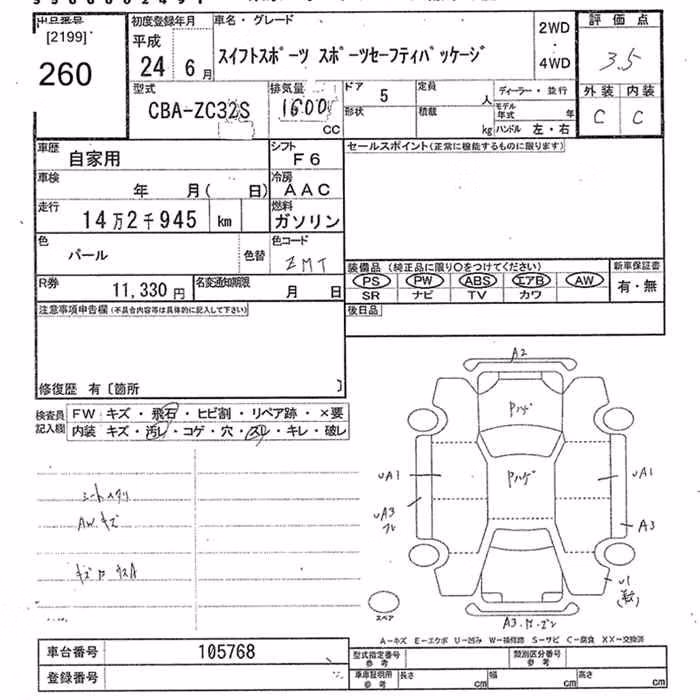 出品番号
[2199]
260
初度登録年月
平成
24 年 6 月
車名・グレード
スイフトスポーツ スポーツセーフティパッケージ
2WD
・
4WD
評価点
3.5
外装 内装
C C
型式
CBA-ZC32S
排気量
1600
CC
ドア 5
形状
定員 人
積載 kg
ディーラー・並行
モデル年式 年
ハンドル 左・右
車歴
自家用
シフト
F6
車検
年 月( 日)
冷房
AAC
走行
14万2千945 km
燃料
ガソリン
色
パール
色替
色コード
ZMT
R券
11,330 円
名変通知期限
月 日
セールスポイント(正常に機能するものに限ります)
装備品(純正品に限り○をつけてください)
PS PW ABS エアB AW
SR ナビ TV カワ
新車保証書
有・無
後日品
注意事項申告欄(不具合内容等は具体的に記入して下さい)
修復歴 有〔箇所 〕
検査員記入欄
FW キズ・飛石・ヒビ割・リペア跡・×要
内装 キズ・汚レ・コゲ・穴・スレ・キレ・破レ
シートヘタリ
AWキズ
A2
Pハゲ
Pハゲ
UA1
UA3
UA1
A3
U1
スペア
A-キズ E-エクボ U-凹み W-補修跡 S-サビ C-腐食 XX-交換済
車台番号 105768
登録番号
型式指定番号 参考
類別区分番号 参考
車庫証明用 参考
長さ cm
幅 cm
高さ cm